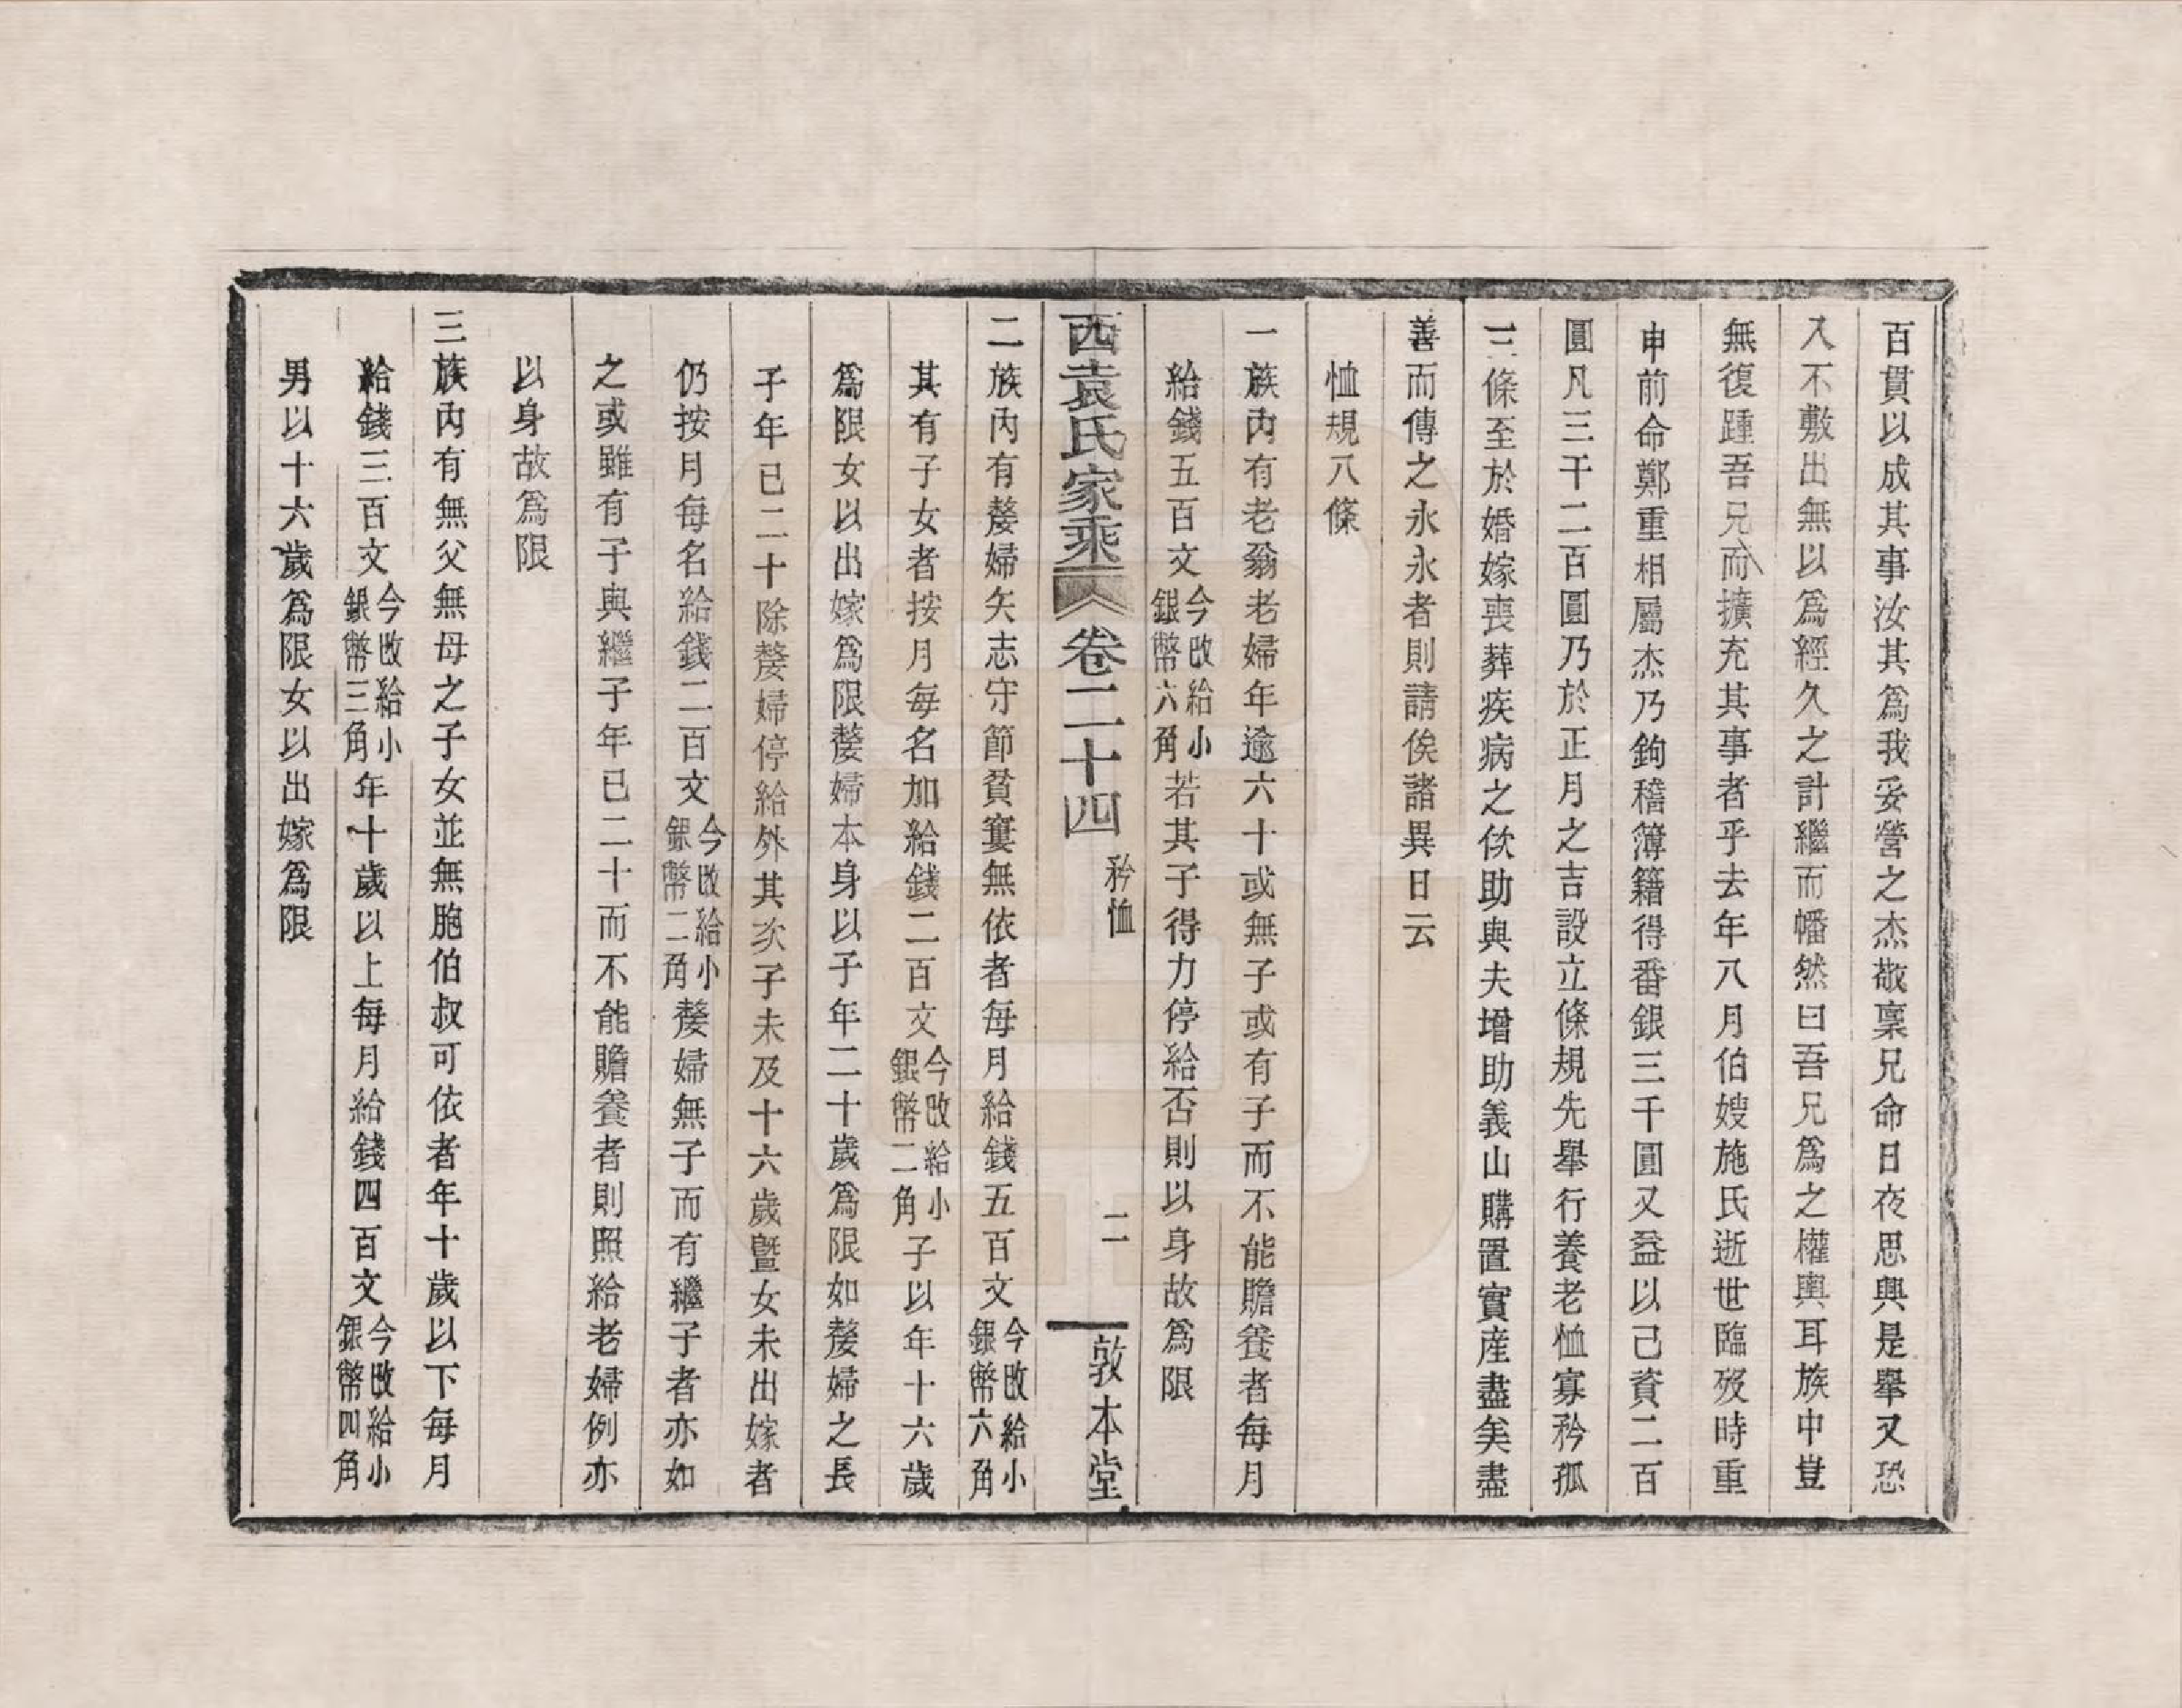 百貫以成其事汝其爲我妥營之杰敬稟兄命日夜思興是舉又恐
入不敷出無以爲經久之計繼而幡然曰吾兄爲之權輿耳族中豈
無復踵吾兄而擴充其事者乎去年八月伯嫂施氏逝世臨歿時重
申前命鄭重相屬杰乃鉤稽簿籍得番銀三千圓又益以己資二百
圓凡三千二百圓乃於正月之吉設立條規先舉行養老恤寡矜孤
三條至於婚嫁喪葬疾病之佽助與夫增助義山購置實產盡美盡
善而傳之永永者則請俟諸異日云
恤規八條
一族內有老翁老婦年逾六十或無子或有子而不能贍養者每月
給錢五百文今改給小銀幣六角若其子得力停給否則以身故爲限
西袁氏家乘 卷二十四 矜恤 二 敦本堂
二族內有嫠婦矢志守節貧窶無依者每月給錢五百文今改給小銀幣六角
其有子女者按月每名加給錢二百文今改給小銀幣二角子以年十六歲
爲限女以出嫁爲限嫠婦本身以子年二十歲爲限如嫠婦之長
子年已二十除嫠婦停給外其次子未及十六歲曁女未出嫁者
仍按月每名給錢二百文今改給小銀幣二角嫠婦無子而有繼子者亦如
之或雖有子與繼子年已二十而不能贍養者則照給老婦例亦
以身故爲限
三族內有無父無母之子女並無胞伯叔可依者年十歲以下每月
給錢三百文今改給小銀幣三角年十歲以上每月給錢四百文今改給小銀幣四角
男以十六歲爲限女以出嫁爲限